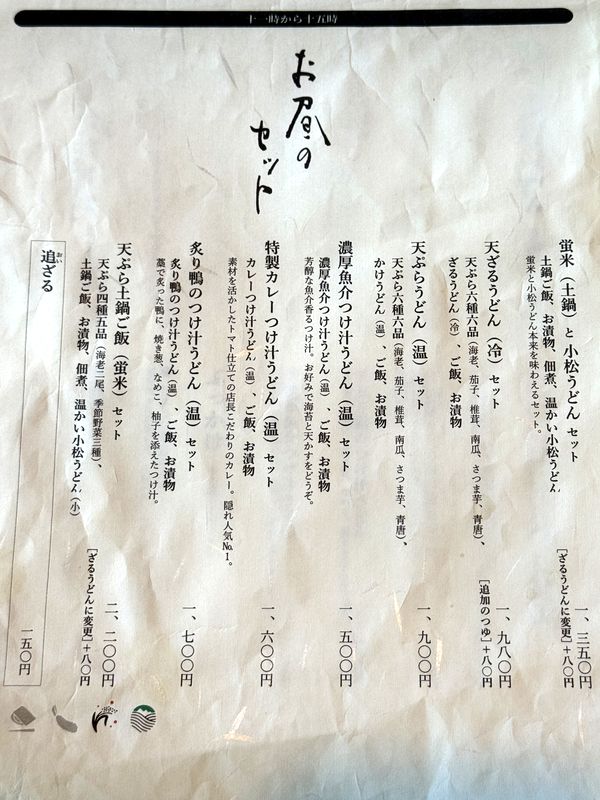 十一時から十五時
お昼の
セット
蛍米（土鍋）と小松うどん セット
土鍋ご飯、お漬物、佃煮、温かい小松うどん
蛍米と小松うどん本来を味わえるセット。
一、三五〇円
［ざるうどんに変更］＋八〇円
天ざるうどん（冷）セット
天ぷら六種六品（海老、茄子、椎茸、南瓜、さつま芋、青唐）、
ざるうどん（冷）、ご飯、お漬物
一、九八〇円
［追加のつゆ］＋八〇円
天ぷらうどん（温）セット
天ぷら六種六品（海老、茄子、椎茸、南瓜、さつま芋、青唐）、
かけうどん（温）、ご飯、お漬物
一、九〇〇円
濃厚魚介つけ汁うどん（温）セット
濃厚魚介つけ汁うどん（温）、ご飯、お漬物
芳醇な魚介香るつけ汁。お好みで海苔と天かすをどうぞ。
一、五〇〇円
特製カレーつけ汁うどん（温）セット
カレーつけ汁うどん（温）、ご飯、お漬物
素材を活かしたトマト仕立ての店長こだわりのカレー。隠れ人気№1。
一、六〇〇円
炙り鴨のつけ汁うどん（温）セット
炙り鴨のつけ汁うどん（温）、ご飯、お漬物
藁で炙った鴨に、焼き葱、なめこ、柚子を添えたつけ汁。
一、七〇〇円
天ぷら土鍋ご飯（蛍米）セット
天ぷら四種五品（海老二尾、季節野菜三種）、
土鍋ご飯、お漬物、佃煮、温かい小松うどん（小）
二、二〇〇円
［ざるうどんに変更］＋八〇円
追ざる
おい
一五〇円